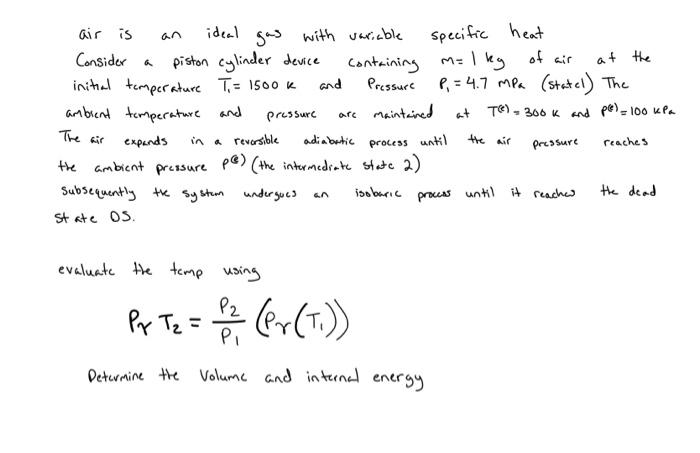 air is an ideal gas with variable specific heat
Consider a piston cylinder device containing m = 1 kg of air at the
initial temperature T₁ = 1500 K and Pressure P₁ = 4.7 MPa (State1) The
ambient temperature and pressure are maintained at T⁽ᵉ⁾ = 300 K and P⁽ᵉ⁾ = 100 kPa
The air expands in a reversible adiabatic process until the air pressure reaches
the ambient pressure P⁽ᵉ⁾ (the intermediate state 2)
Subsequently the system undergoes an isobaric process until it reaches the dead
state OS.
evaluate the temp using
Pr T₂ = P₂/P₁ (Pr(T₁))
Determine the Volume and internal energy